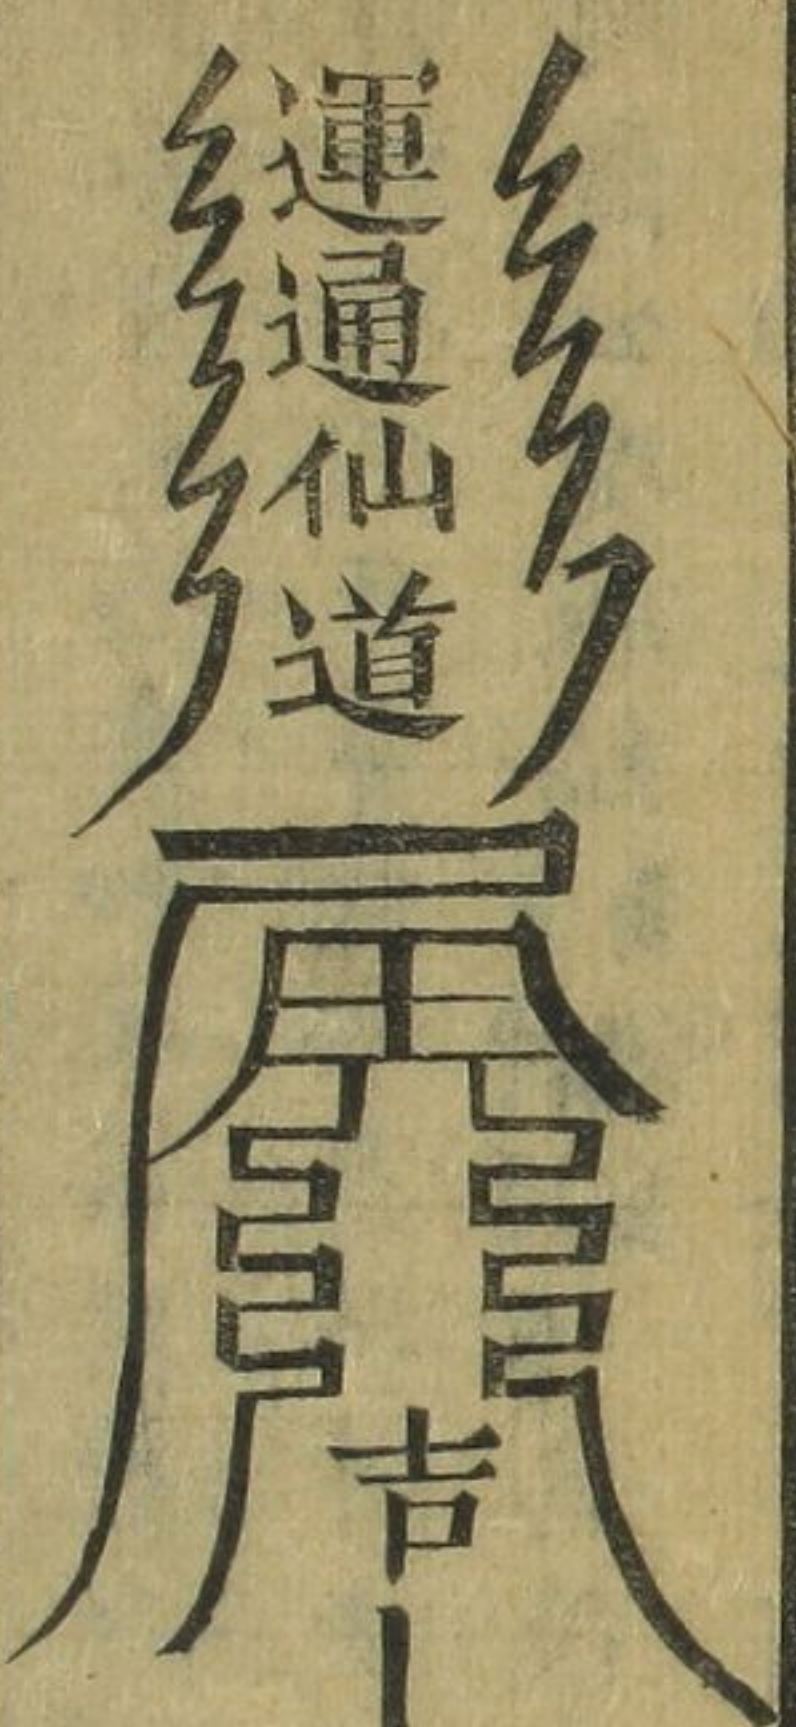 運通仙道
吉